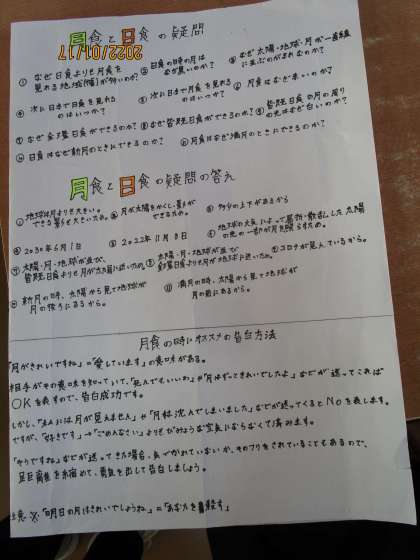 月食と日食の疑問
2022/01/17
① なぜ日食よりも月食を
見れる地域(場)が多いのか?
② 日食の時の月は
なぜ黒いのか?
③ なぜ太陽・地球・月が一直線
に並ぶのがまれなのか?
④ 次に日本で日食を見れる
のはいつか?
⑤ 次に日本で月食を見れる
のはいつか?
⑥ 月食はなぜ赤いのか?
⑦ なぜ金環日食ができるのか?
⑧ なぜ皆既日食ができるのか?
⑨ 皆既日食の月の周り
の光はなぜ白いのか?
⑩ 日食はなぜ新月のときにできるのか?
⑪ 月食はなぜ満月のときにできるのか?
月食と日食の疑問の答え
① 地球は月よりも大きい。
できる影も大きいため。
② 月が太陽をかくし、影が
できるため。
③ 多少の上下があるから
④ 2030年6月1日
⑤ 2022年11月8日
⑥ 地球の大気によって屈折・散乱した太陽
の光の一部が月を照らすため。
⑦ 太陽・月・地球が並び、
皆既日食より月が太陽に近いため。
⑧ 太陽・月・地球が並び
金環日食よりも月が地球に近いため。
⑨ コロナが見えているから。
⑩ 新月の時、太陽から見て地球が
月の後ろにあるから。
⑪ 満月の時、太陽から見て地球が
月の前にあるから。
月食の時にオススメの告白方法
「月がきれいですね」=「愛しています」の意味がある。
相手がその意味を知っていて、「死んでもいいわ」や「月はずっときれいでしたよ」などが返ってくれば
OKを表すので、告白成功です。
しかし、「私には月が見えません」や「月は沈んでしまいました」などが返ってくるとNoを表します。
ですが、「好きです」→「ごめんなさい」よりもびみょうな空気にならなくて済みます。
「そうですね」などが返ってきた場合、気づかれていないか、そのフリをされていることもあるので、
勇気を出して告白しましょう。
注意 ※「明日の月はきれいでしょうね」=「あなたを殺す」